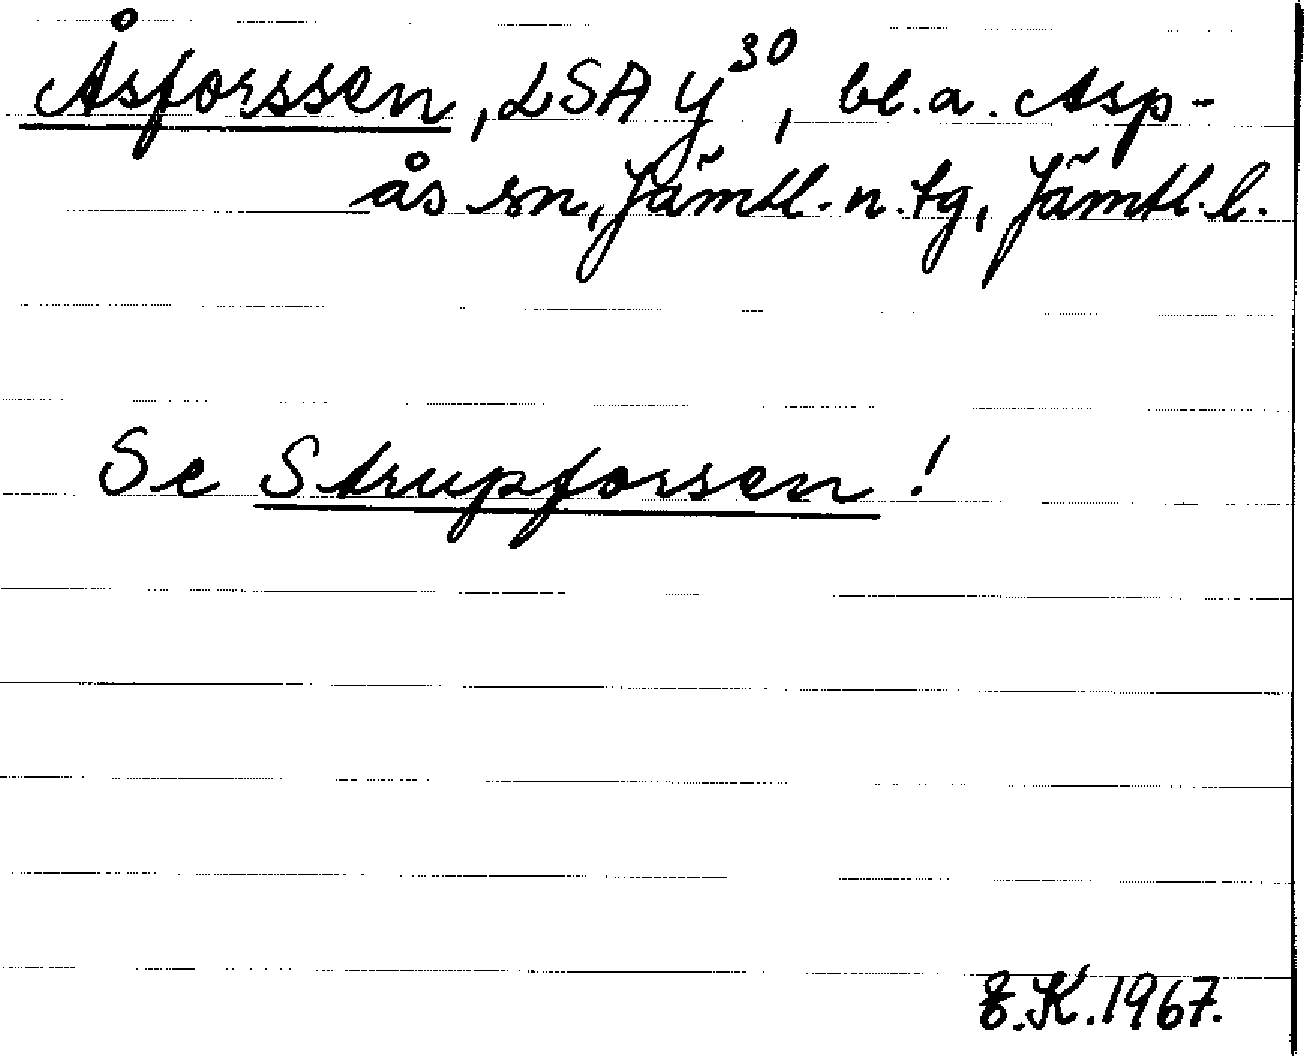 Åsforssen, LSA Y30, bl.a. Asp-
ås sn, Jämtl. n. tg, Jämtl. l.
Se Strupforsen!
K. 1967.